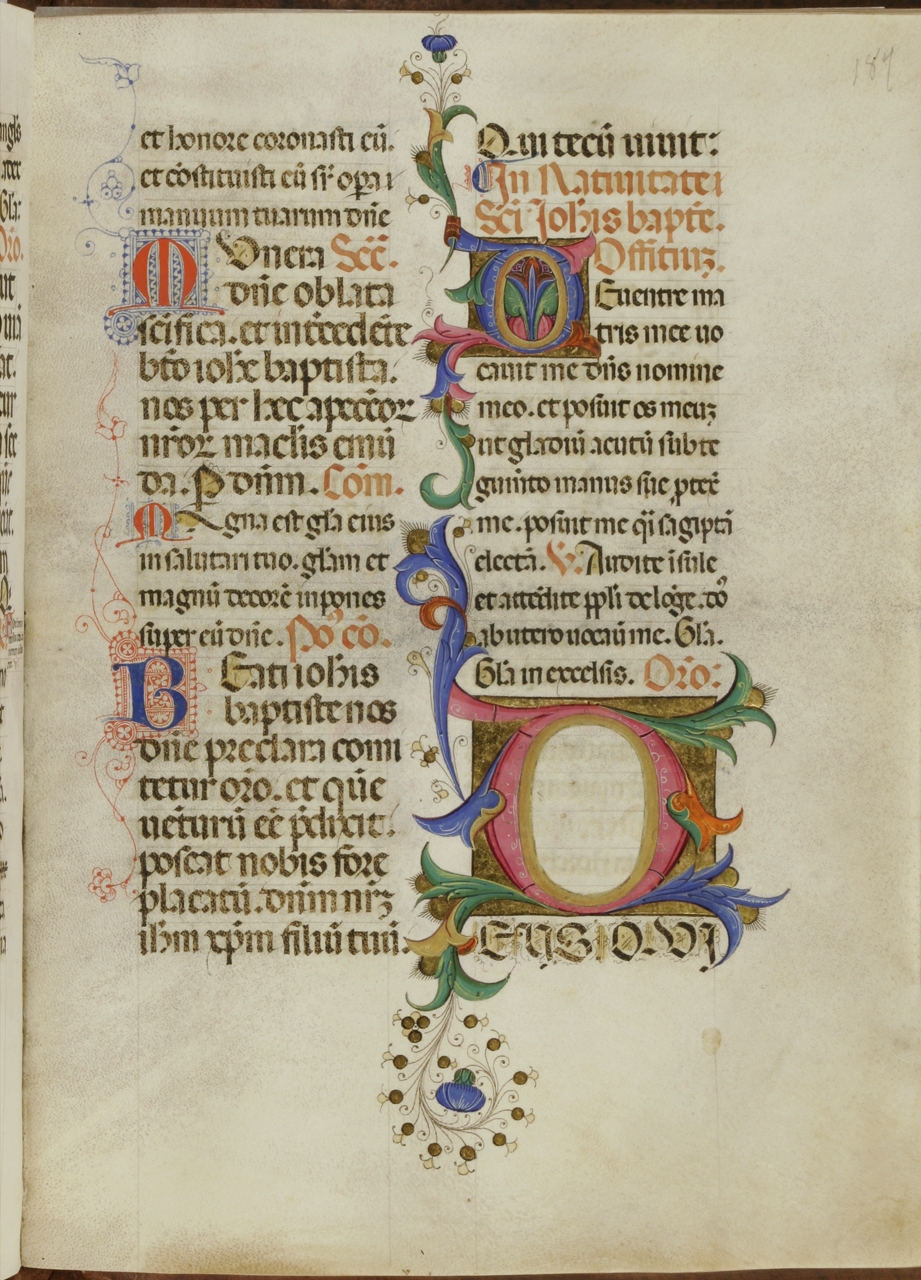 et honore coronasti eū.
et cōstituisti eū sr̄ opa
manuum tuarum dn̄e
MVnera Scē.
dn̄e oblata
scīfica. et intercedēte
bt̄o ioh̄e baptista.
nos per hec a peccōꝝ
nr̄oꝝ maclis emū
da. P dn̄m. Cōm.
MAgna est gl̄a eius
in salutari tuo. glām et
magnū decorē inpones
super eū dn̄e. Po᷒ cō.
BEati ioh̄is
baptiste nos
dn̄e preclara comi
tetur or̄o. et quē
uēturū eē p̄dixit.
poscat nobis fore
placatū. dn̄m nr̄ꝫ
ih̄m xp̄m filiū tuū.
Q̄ui tecū uiuit:
In Natiuitate
Sc̄i Joh̄is bapt̄e.
Officiuꝫ.
DE uentre ma
tris mee uo
cauit me dn̄s nomine
meo. et posuit os meuꝫ
ut gladiū acutū subte
gumto manus sue ptex̄
me. posuit me q̄i sagiptā
electā. V. Audite īsule
et attēdite pp̄li de lōge. dō
ab utero uocauī me. Gl̄a.
Gl̄a in excelsis. Or̄o:
DEUS QVI
187